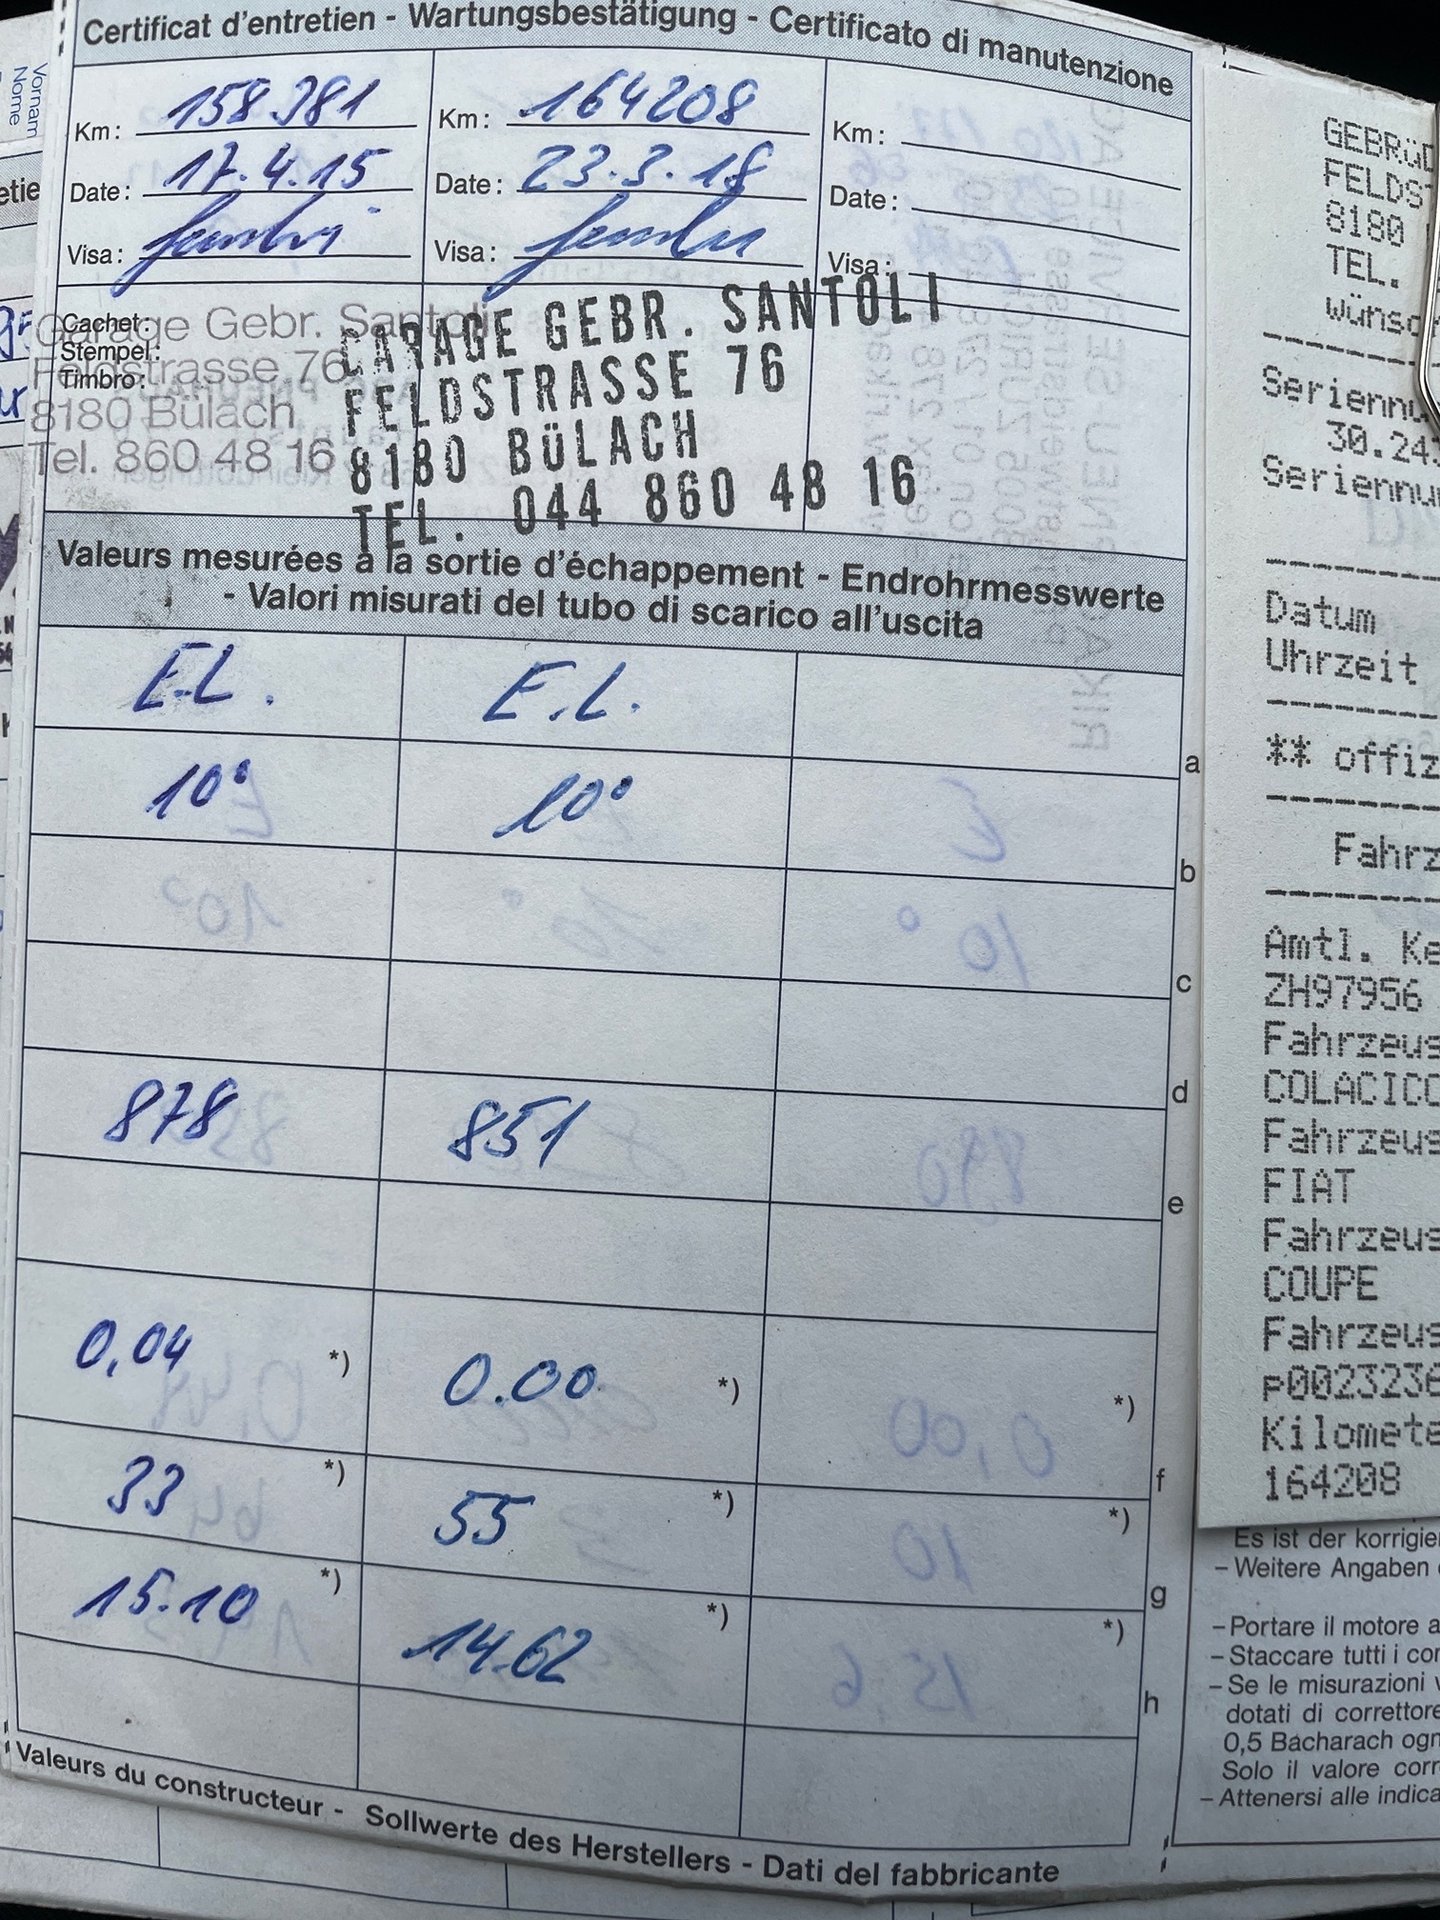 Certificat d'entretien - Wartungsbestätigung - Certificato di manutenzione
Vornam
Nome
etie
Km: 158381 Km: 164208 Km:
Date: 17.4.15 Date: 23.3.18 Date:
Visa: Visa: Visa:
Cachet:
Stempel:
Timbro:
Garage Gebr. Santoli
Feldstrasse 76
8180 Bülach
Tel. 860 48 16
GARAGE GEBR. SANTOLI
FELDSTRASSE 76
8180 BÜLACH
TEL. 044 860 48 16
Valeurs mesurées à la sortie d'échappement - Endrohrmesswerte
- Valori misurati del tubo di scarico all'uscita
E.L. E.L.
a
10° 10°
b
c
d
878 851
e
0,04 *) 0.00 *) *)
f
33 *) 55 *) *)
g
15.10 *) 14.62 *) *)
h
Valeurs du constructeur - Sollwerte des Herstellers - Dati del fabbricante
GEBRüD
FELDST
8180
TEL.
wünsc
Seriennu
30.243
Seriennu
Datum
Uhrzeit
** offiz
Fahrz
Amtl. Ke
ZH97956
Fahrzeus
COLACICC
Fahrzeus
FIAT
Fahrzeus
COUPE
Fahrzeus
p0023236
Kilomete
164208
Es ist der korrigie
– Weitere Angaben
– Portare il motore a
– Staccare tutti i cor
– Se le misurazioni v
dotati di correttore
0,5 Bacharach ogn
Solo il valore corr
– Attenersi alle indica